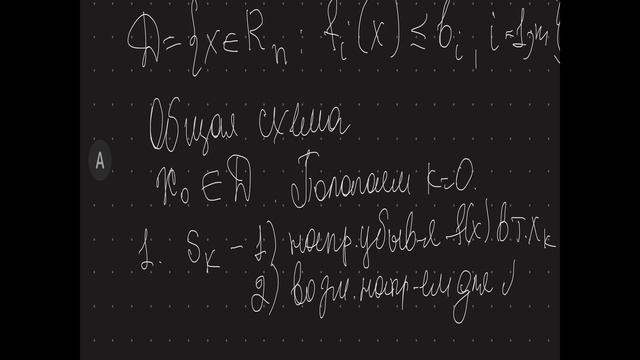 D = {x ∈ R_n : f_i(x) ≤ b_i, i = 1,m}
Общая схема
x_0 ∈ D. Полагаем k=0.
A
1. S_k – 1) напр. убыв-я f(x) в т. x_k
2) возм. напр-ем для